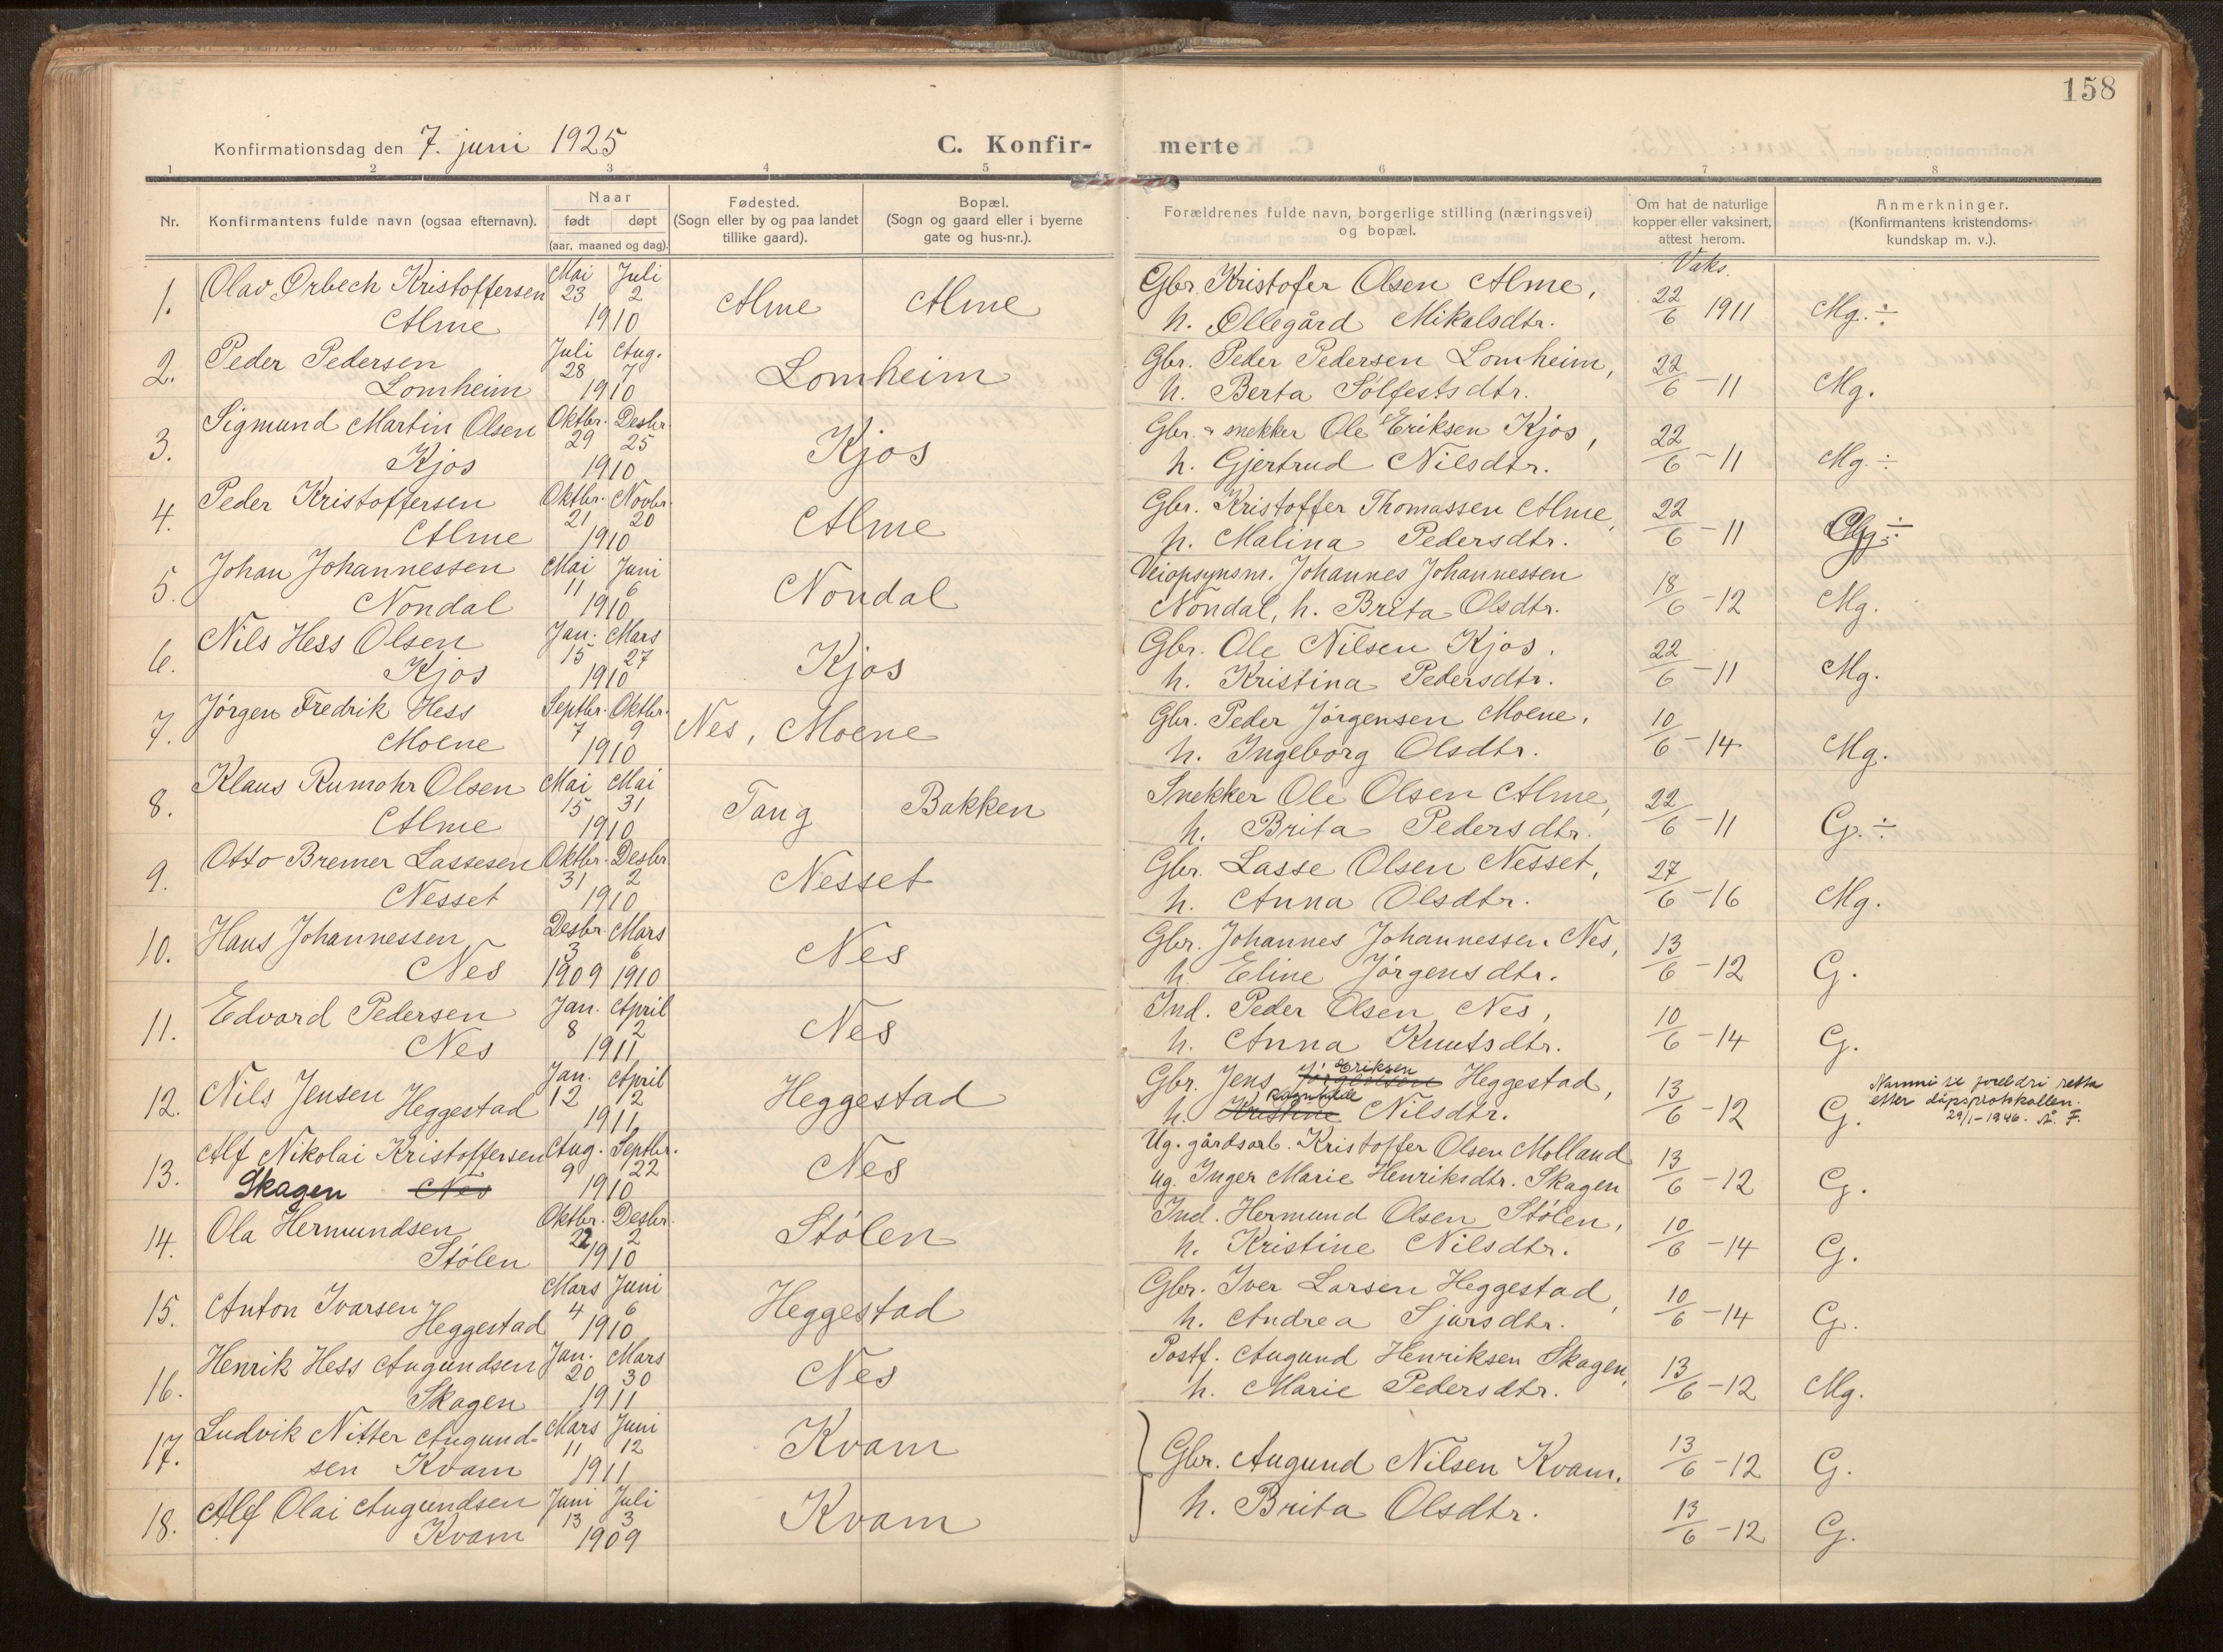 158
Konfirmationsdag den 7. juni 1925
C. Konfir- merte
1 2 3 4 5 6 7 8
Nr.
Konfirmantens fulde navn (ogsaa efternavn).
Naar
født døpt
(aar, maaned og dag).
Fødested.
(Sogn eller by og paa landet
tillike gaard).
Bopæl.
(Sogn og gaard eller i byerne
gate og hus-nr.).
Forældrenes fulde navn, borgerlige stilling (næringsvei)
og bopæl.
Om hat de naturlige
kopper eller vaksinert,
attest herom.
Anmerkninger.
(Konfirmantens kristendoms-
kundskap m. v.).
Vaks.
1. Olav Ørbech Kristoffersen Mai 23 Juli 2 Alme Alme Gbr. Kristofer Olsen Alme, 22/6 1911 Mg. ÷
Alme 1910 h. Øllegård Mikalsdtr.
2. Peder Pedersen Juli 28 Aug. 7 Lomheim Gbr. Peder Pedersen Lomheim, 22/6 - 11 Mg.
Lomheim 1910 h. Berta Sølfestsdtr.
3. Sigmund Martin Olsen Oktbr. 29 Desbr. 25 Kjos Gbr. & snekker Ole Eriksen Kjos, 22/6 - 11 Mg. ÷
Kjos 1910 h. Gjertrud Nilsdtr.
4. Peder Kristoffersen Oktbr. 21 Novbr. 20 Alme Gbr. Kristoffer Thomassen Alme, 22/6 - 11 ÷
Alme 1910 h. Malina Pedersdtr.
5. Johan Johannessen Mai 11 Juni 6 Nondal Veiopsynsm. Johannes Johannessen 18/6 - 12 Mg.
Nondal 1910 Nondal, h. Brita Olsdtr.
6. Nils Hess Olsen Jan. 15 Mars 27 Kjos Gbr. Ole Nilsen Kjos, 22/6 - 11 Mg.
Kjos 1910 h. Kristina Pedersdtr.
7. Jørgen Fredrik Hess Septbr. 7 Oktbr. 9 Nes, Moene Gbr. Peder Jørgensen Moene, 10/6 - 14 Mg.
Moene 1910 h. Ingeborg Olsdtr.
8. Klaus Rumohr Olsen Mai 15 Mai 31 Tang Bakken Snekker Ole Olsen Alme, 22/6 - 11 G. ÷
Alme 1910 h. Brita Pedersdtr.
9. Otto Bremer Lassesen Oktbr. 31 Desbr. 2 Nesset Gbr. Lasse Olsen Nesset, 27/6 - 16 Mg.
Nesset 1910 h. Anna Olsdtr.
10. Hans Johannessen Desbr. 3 Mars 6 Nes Gbr. Johannes Johannessen Nes, 13/6 - 12 G.
Nes 1909 1910 h. Eline Jørgensdtr.
11. Edvard Pedersen Jan. 8 April 2 Nes Ind. Peder Olsen Nes, 10/6 - 14 G.
Nes 1911 h. Anna Knutsdtr.
12. Nils Jensen Jan. 12 April 2 Heggestad Gbr. Jens Eriksen Heggestad, 13/6 - 12 G.
Heggestad 1911 h. Ragnhilde Kristine Nilsdtr.
Namni åt foreldri retta
etter dåpsprotokollen.
29/1-1946. A. F.
13. Alf Nikolai Kristoffersen Aug. 9 Septbr. 22 Nes Ug. gårdsarb. Kristoffer Olsen Molland 13/6 - 12 G.
Skagen Nes 1910 ug. Inger Marie Henriksdtr. Skagen
14. Ola Hermundsen Oktbr. 22 Desbr. 2 Stølen Ind. Hermund Olsen Stølen, 10/6 - 14 G.
Stølen 1910 h. Kristine Nilsdtr.
15. Anton Ivarsen Mars 4 Juni 6 Heggestad Gbr. Iver Larsen Heggestad, 10/6 - 14 G.
Heggestad 1910 h. Andrea Sjursdtr.
16. Henrik Hess Augundsen Jan. 20 Mars 30 Nes Postf. Augund Henriksen Skagen, 13/6 - 12 Mg.
Skagen 1911 h. Marie Pedersdtr.
17. Ludvik Nitter Augund- Mars 11 Juni 12 Kvam Gbr. Augund Nilsen Kvam, 13/6 - 12 G.
sen Kvam 1911
18. Alf Olai Augundsen Juni 13 Juli 3 Kvam h. Brita Olsdtr. 13/6 - 12 G.
Kvam 1909